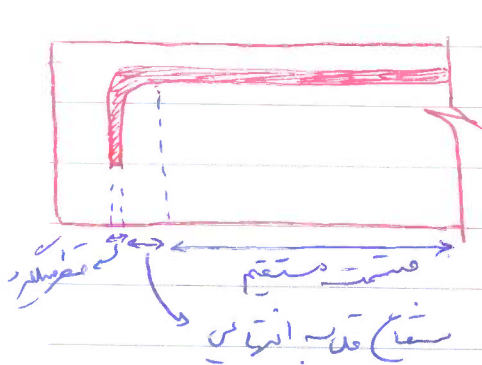 قطر میلگرد
قسمت مستقیم
شعاع قلاب انتهایی